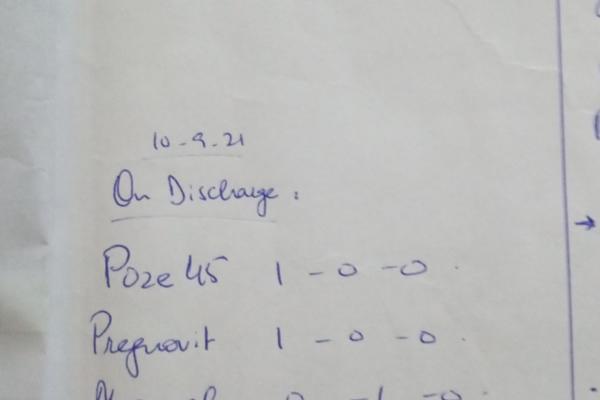 10-9-21
On Discharge :
Poze 45 1 - 0 - 0 .
Pregnovit 1 - 0 - 0 .
0 - 1 - 0 .